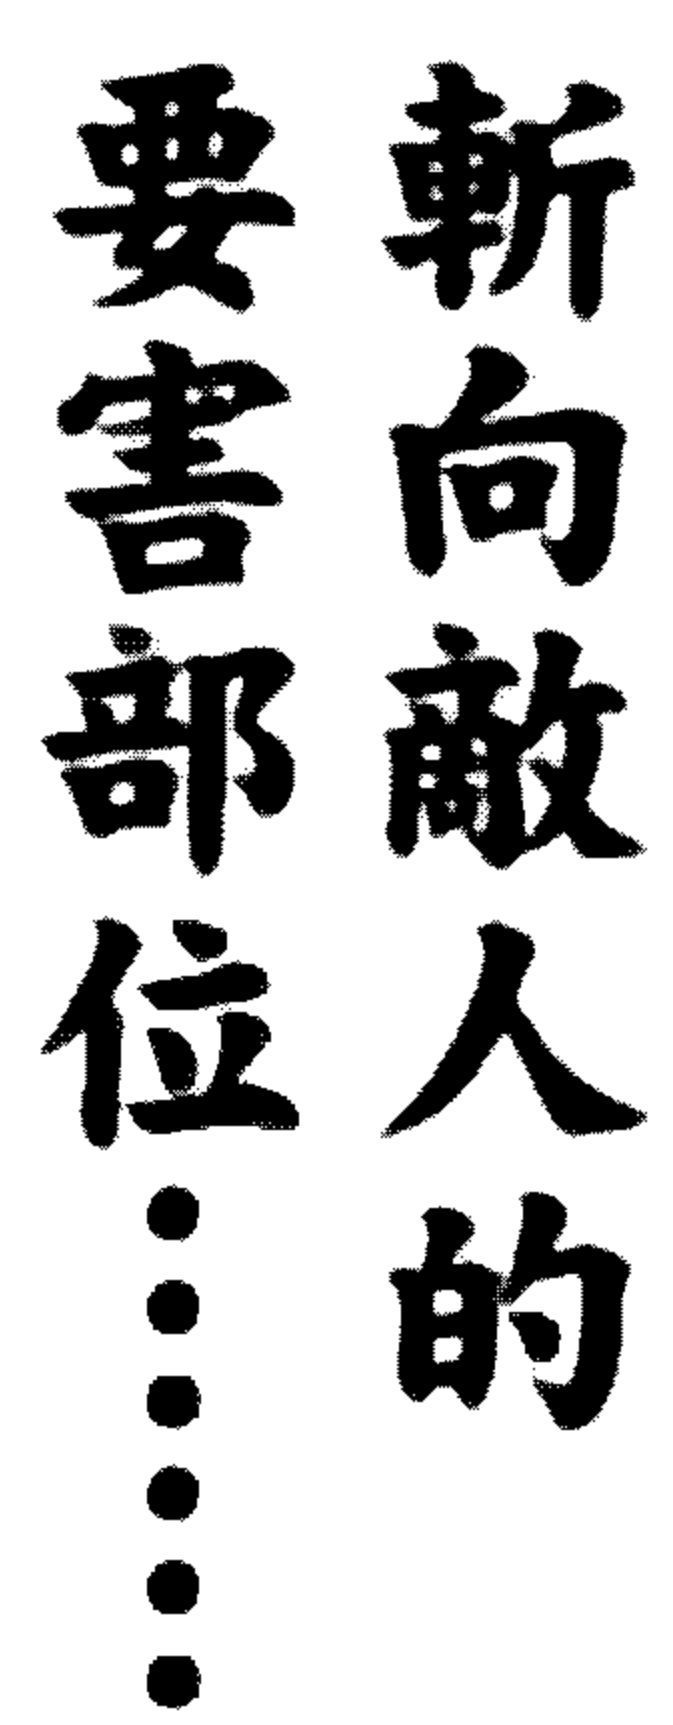 斬向敵人的
要害部位……